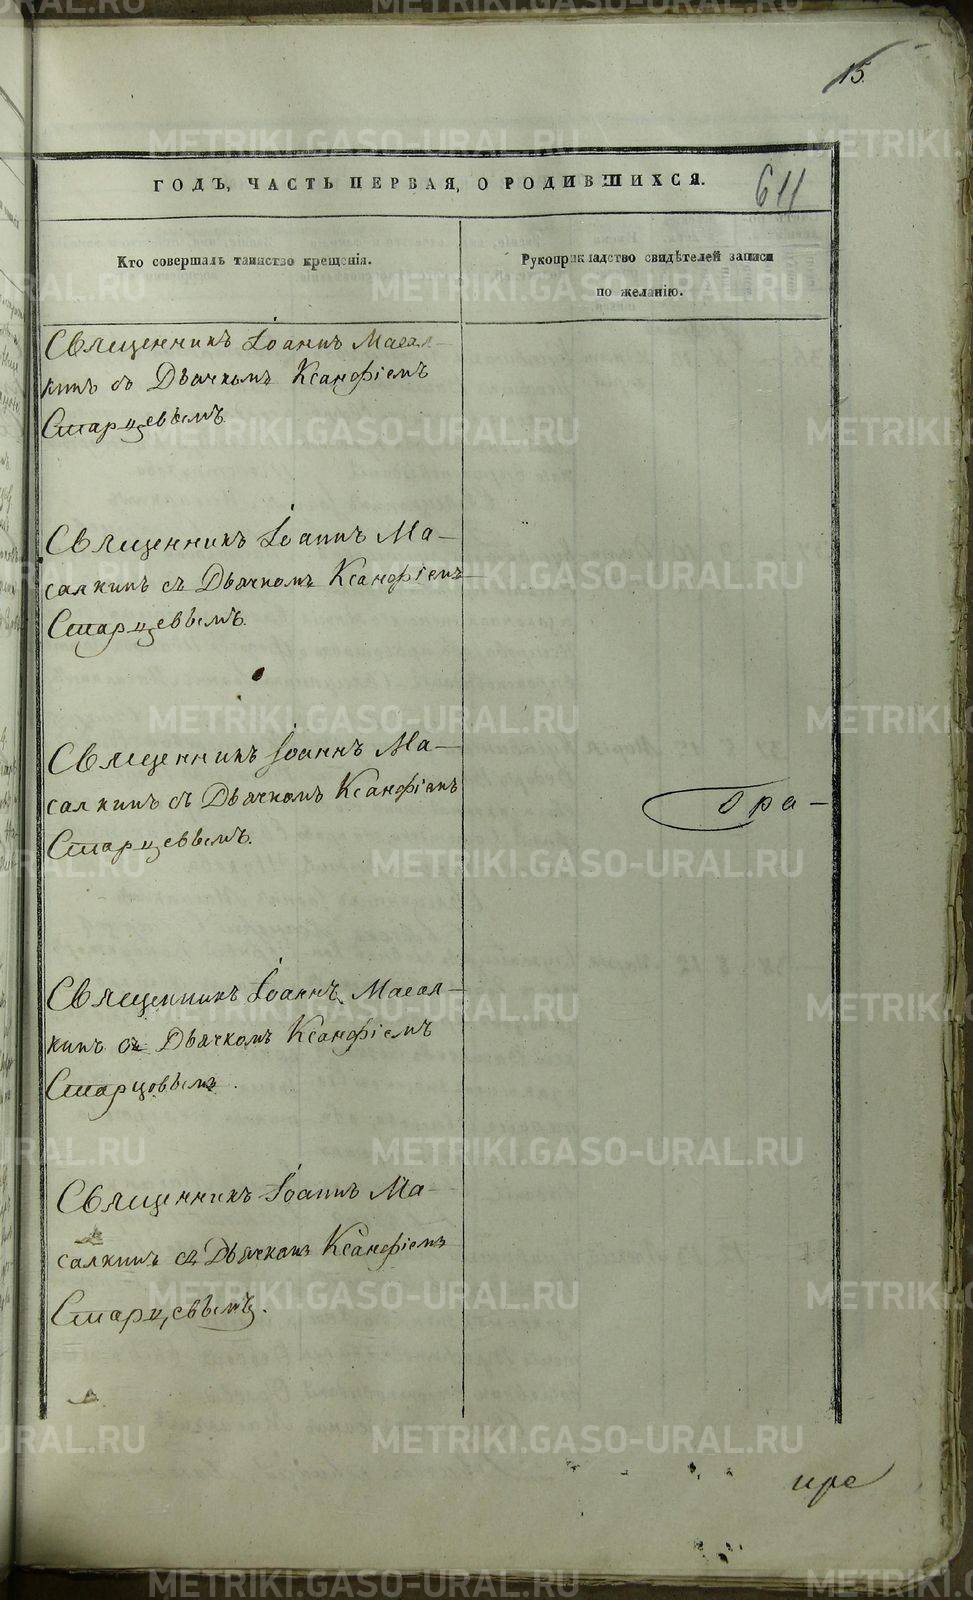 15.
ГОДЪ, ЧАСТЬ ПЕРВАЯ, О РОДИВШИХСЯ.
611
Кто совершалъ таинство крещенія.
Рукоприкладство свидѣтелей записи
по желанію.
Священникъ Іоаннъ Масал–
кинъ съ Дьячкомъ Ксанфіемъ
Старцевымъ.
Священникъ Іоаннъ Ма–
салкинъ съ Дьячкомъ Ксанфіемъ
Старцевымъ.
Священникъ Іоаннъ Ма–
салкинъ съ Дьячкомъ Ксанфіемъ
Старцевымъ.
Ора–
Священникъ Іоаннъ Масал–
кинъ съ Дьячкомъ Ксанфіемъ
Старцовымъ.
Священникъ Іоаннъ Ма–
салкинъ съ Дьячкомъ Ксанфіемъ
Старцевымъ.
METRIKI.GASO-URAL.RU